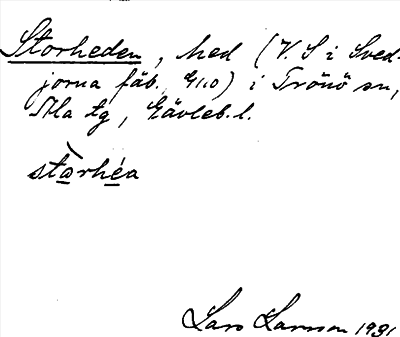 Storheden, hed (V. S i Sved-
jorna fäb., G110) i Trönö sn,
Ala tg, Gävleb. l.
stårhéa
Lars Larsson 1931